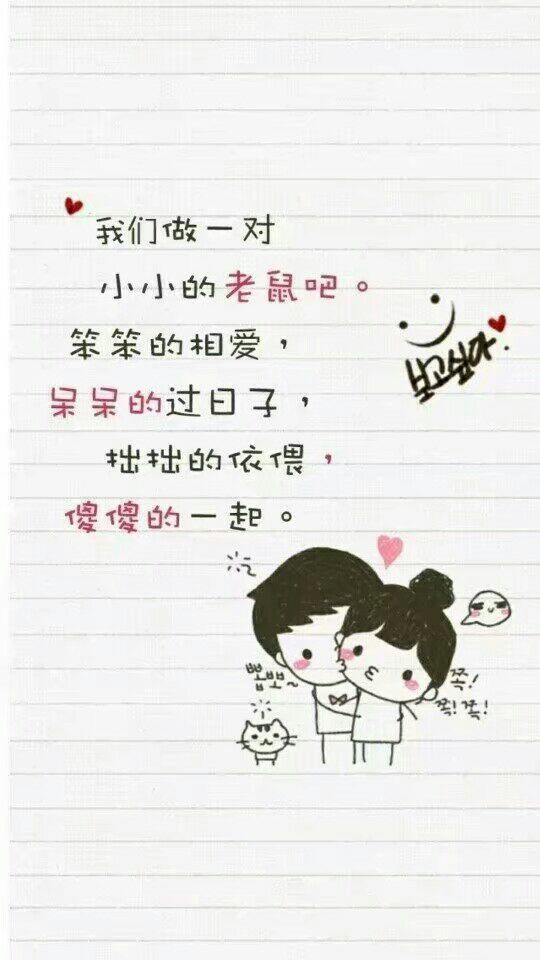 我们做一对
小小的老鼠吧。
笨笨的相爱，
呆呆的过日子，
拙拙的依偎，
傻傻的一起。
보고싶다.
뽀뽀~
쪽!
쪽!쪽!